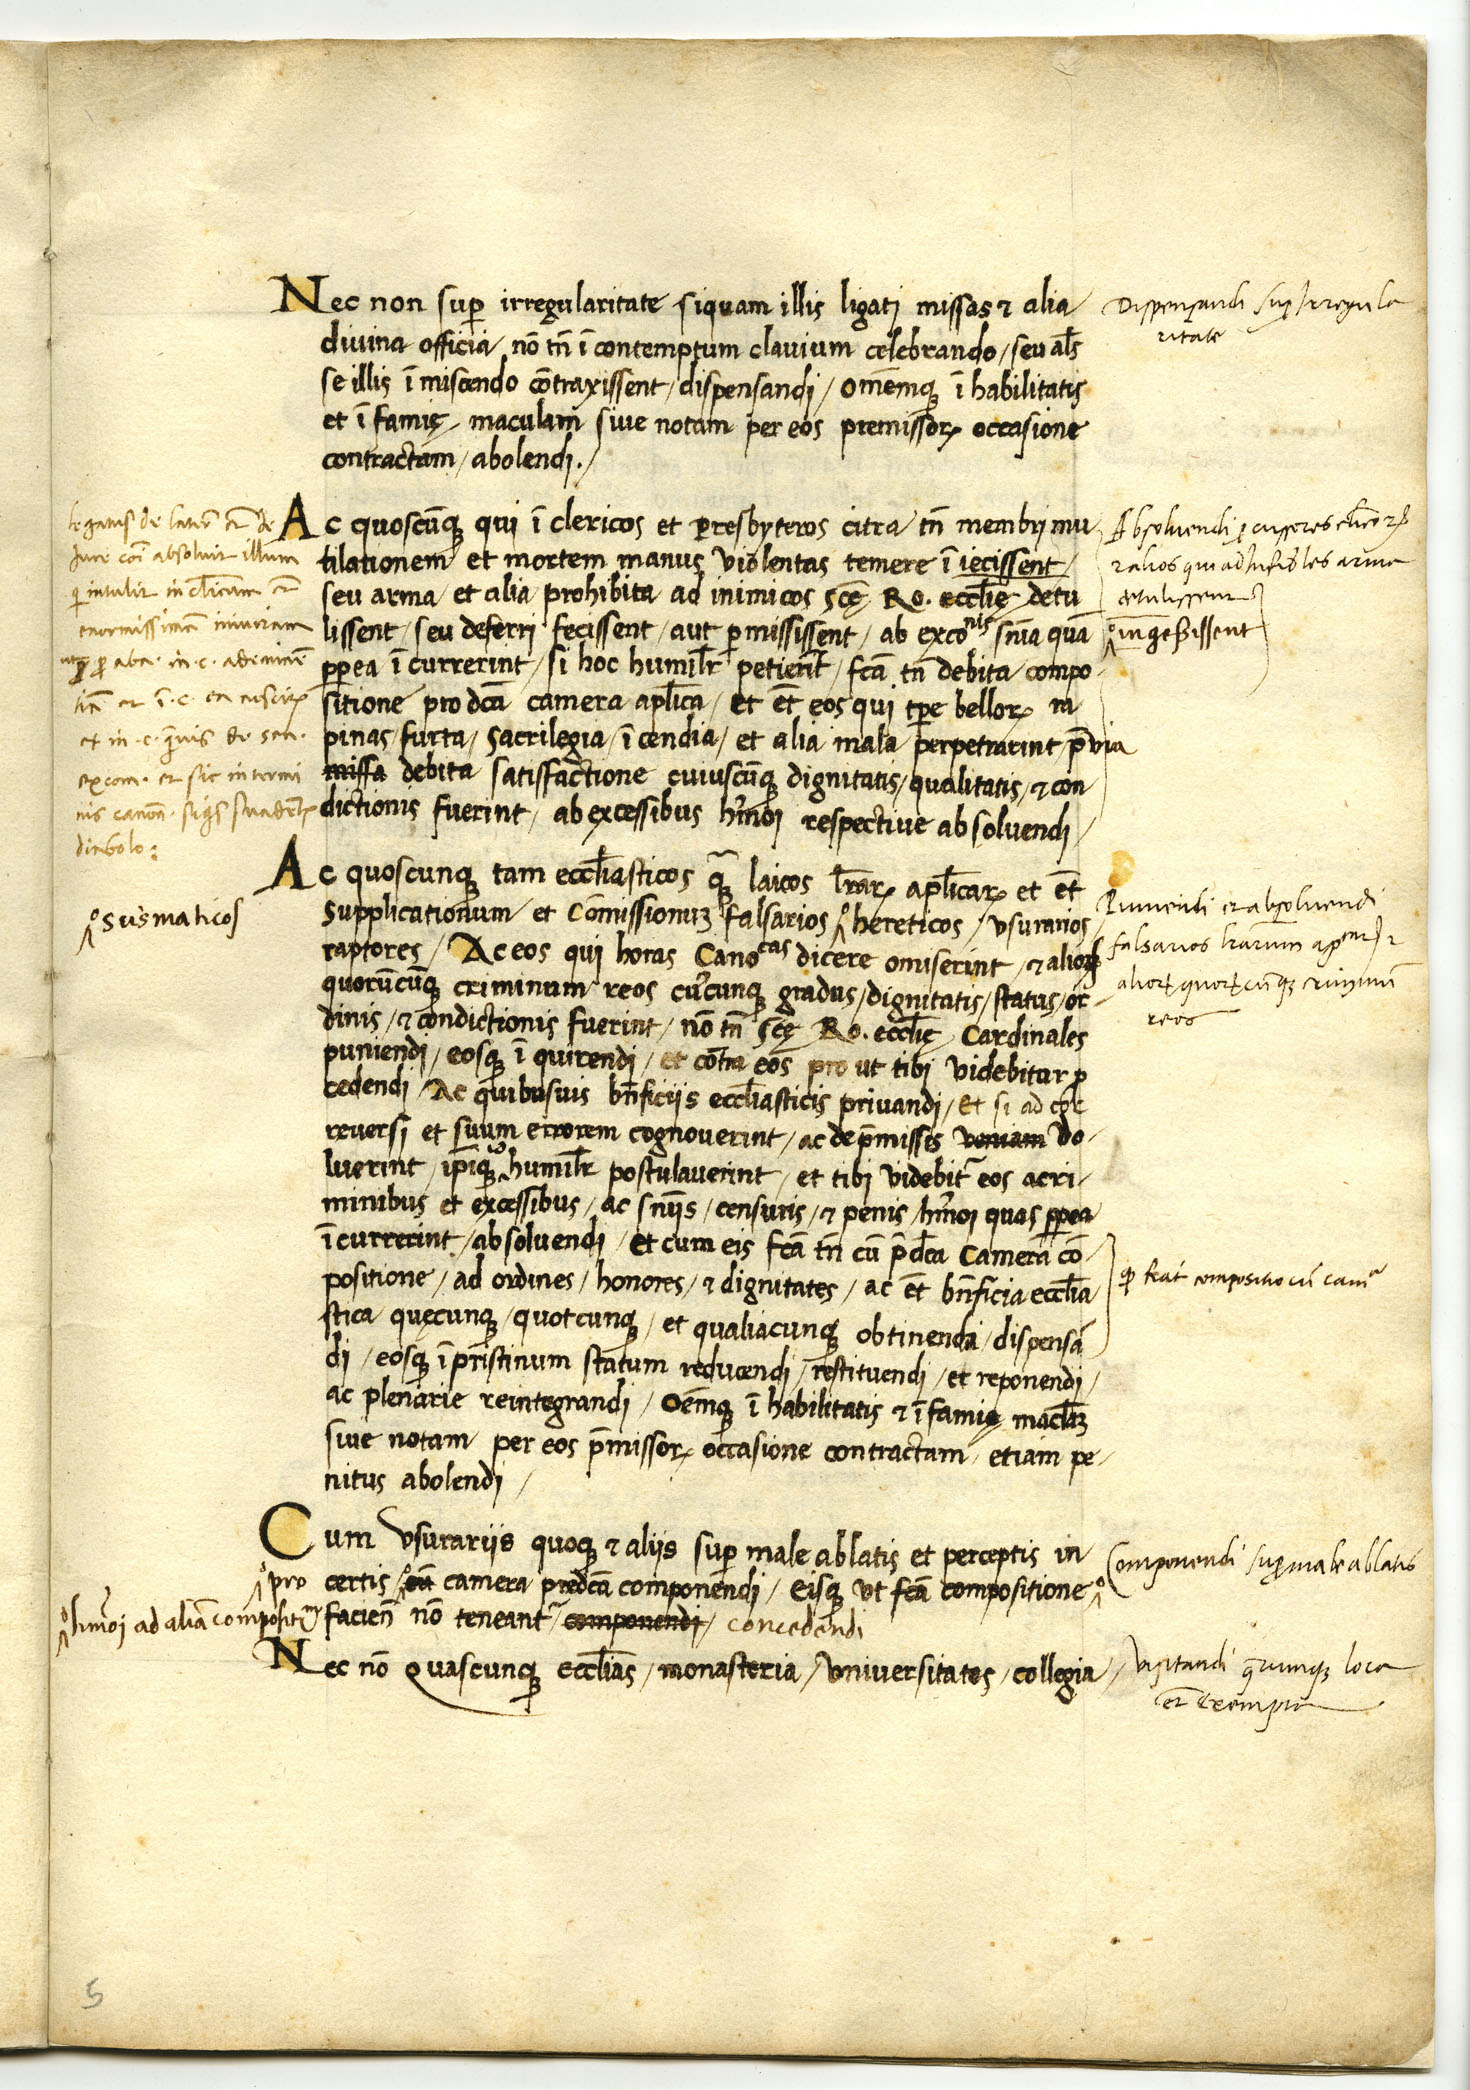 Nec non suꝑ irregularitate siquam illis ligati missas ⁊ alia
diuina officia nō tn̄ ī contemptum clauium celebrando / seu al̄s
se illis ī miscendo cōtraxissent / dispensandi / omēmq; ī habilitatis
et ī famię maculam siue notam per eos premissoꝝ occasione
contractam / abolendi . /
Dispensandi suꝑ Irregula
ritate
Ac quoscūq; qui ī clericos et presbyteros citra tn̄ membri mu
tilationem et mortem manus violentas temere ī iecissent /
seu arma / et alia prohibita ad inimicos Scę Ro. ecclīe detu
lissent / seu deferri fecissent / aut ꝑmississent / ab exconis snīa quā
ꝓpea ī currerint / si hoc humilr̄ petierīt / fcā tn̄ debita compo
sitione pro dcā camera aplīca / et ēt eos qui tpe belloꝝ ra
pinas / furta / Sacrilegia / ī cendia / et alia mala perpetrarint / p̄via
missa debita satisfactione cuiuscūq; dignitatis / qualitatis / ⁊ con
dictionis fuerint / ab excessibus hm̄oi respectiue absoluendi /
legatus de latere
Jure absoluit illum
qui intulit in clīcum
enormissimā iniuriam
excom. et sic in termi
nis canon.
diabolo :
Absoluendi ꝑcussores
⁊ alios qui ad Infideles arma
detulissent
ingessissent
Ac quoscunq; tam ecclīasticos q̄ laicos lr̄aꝝ aplīcaꝝ et ēt
Supplicationum et Cōmissionuꝫ falsarios hereticos / vsurarios /
raptores / Ac eos qui horas Canocas dicere omiserint / ⁊ alioꝝ
quorūcūq; criminum reos cuiꝰcunq; gradus / dignitatis / status / or
dinis / ⁊ condictionis fuerint / nō tn̄ Scę Ro. ecclīę Cardinales
puniendi / eosq; ī quirendi / et cōtra eos pro ut tibi videbitur ꝓ
cedendi / Ac quibusuis bn̄ficiis ecclīasticis priuandi / Et si ad cor
reuersi et suum errorem cognouerint / ac de p̄missis veniam do
luerint / ip̄iq; humilr̄ postulauerint / et tibi videbit̄ eos a cri
minibus et excessibus / ac snīis / censuris / ⁊ penis / hm̄oi quas ꝓpea
ī currerint / absoluendi / Et cum eis fcā tn̄ cū p̄dcā Camerā cō
positione / ad ordines / honores / ⁊ dignitates / ac ēt bn̄ficia ecclīa
stica quęcunq; / quotcunq; / et qualiacunq; obtinenda / dispensā
di / eosq; ī pristinum statum reducendi / restituendi / et reponendi /
ac plenarie reintegrandi / Oēmq; ī habilitatis ⁊ ī famię maclāꝫ
siue notam per eos p̄missoꝝ occasione contractam / etiam pe
nitus abolendi /
susmaticos
Puniendi et absoluendi
falsarios lr̄arum ⁊
alioꝝ quoꝝcūq; criminū
reos
ꝙ fiat compositio cū camª
Cum vsurariis quoq; ⁊ aliis suꝑ male ablatis et perceptis in
certis / cū camera predcā componendi / eisq; vt fcā compositione
facien̄ nō teneant̄ componendi / concedendi
pro
hm̄oi ad aliā compositēm
Componendi suꝑ male ablatis
Nec nō quascunq; ecclīas / monasteria / vniuersitates / collegia /
Visitandi quęcunq; loca
et Exempta
5